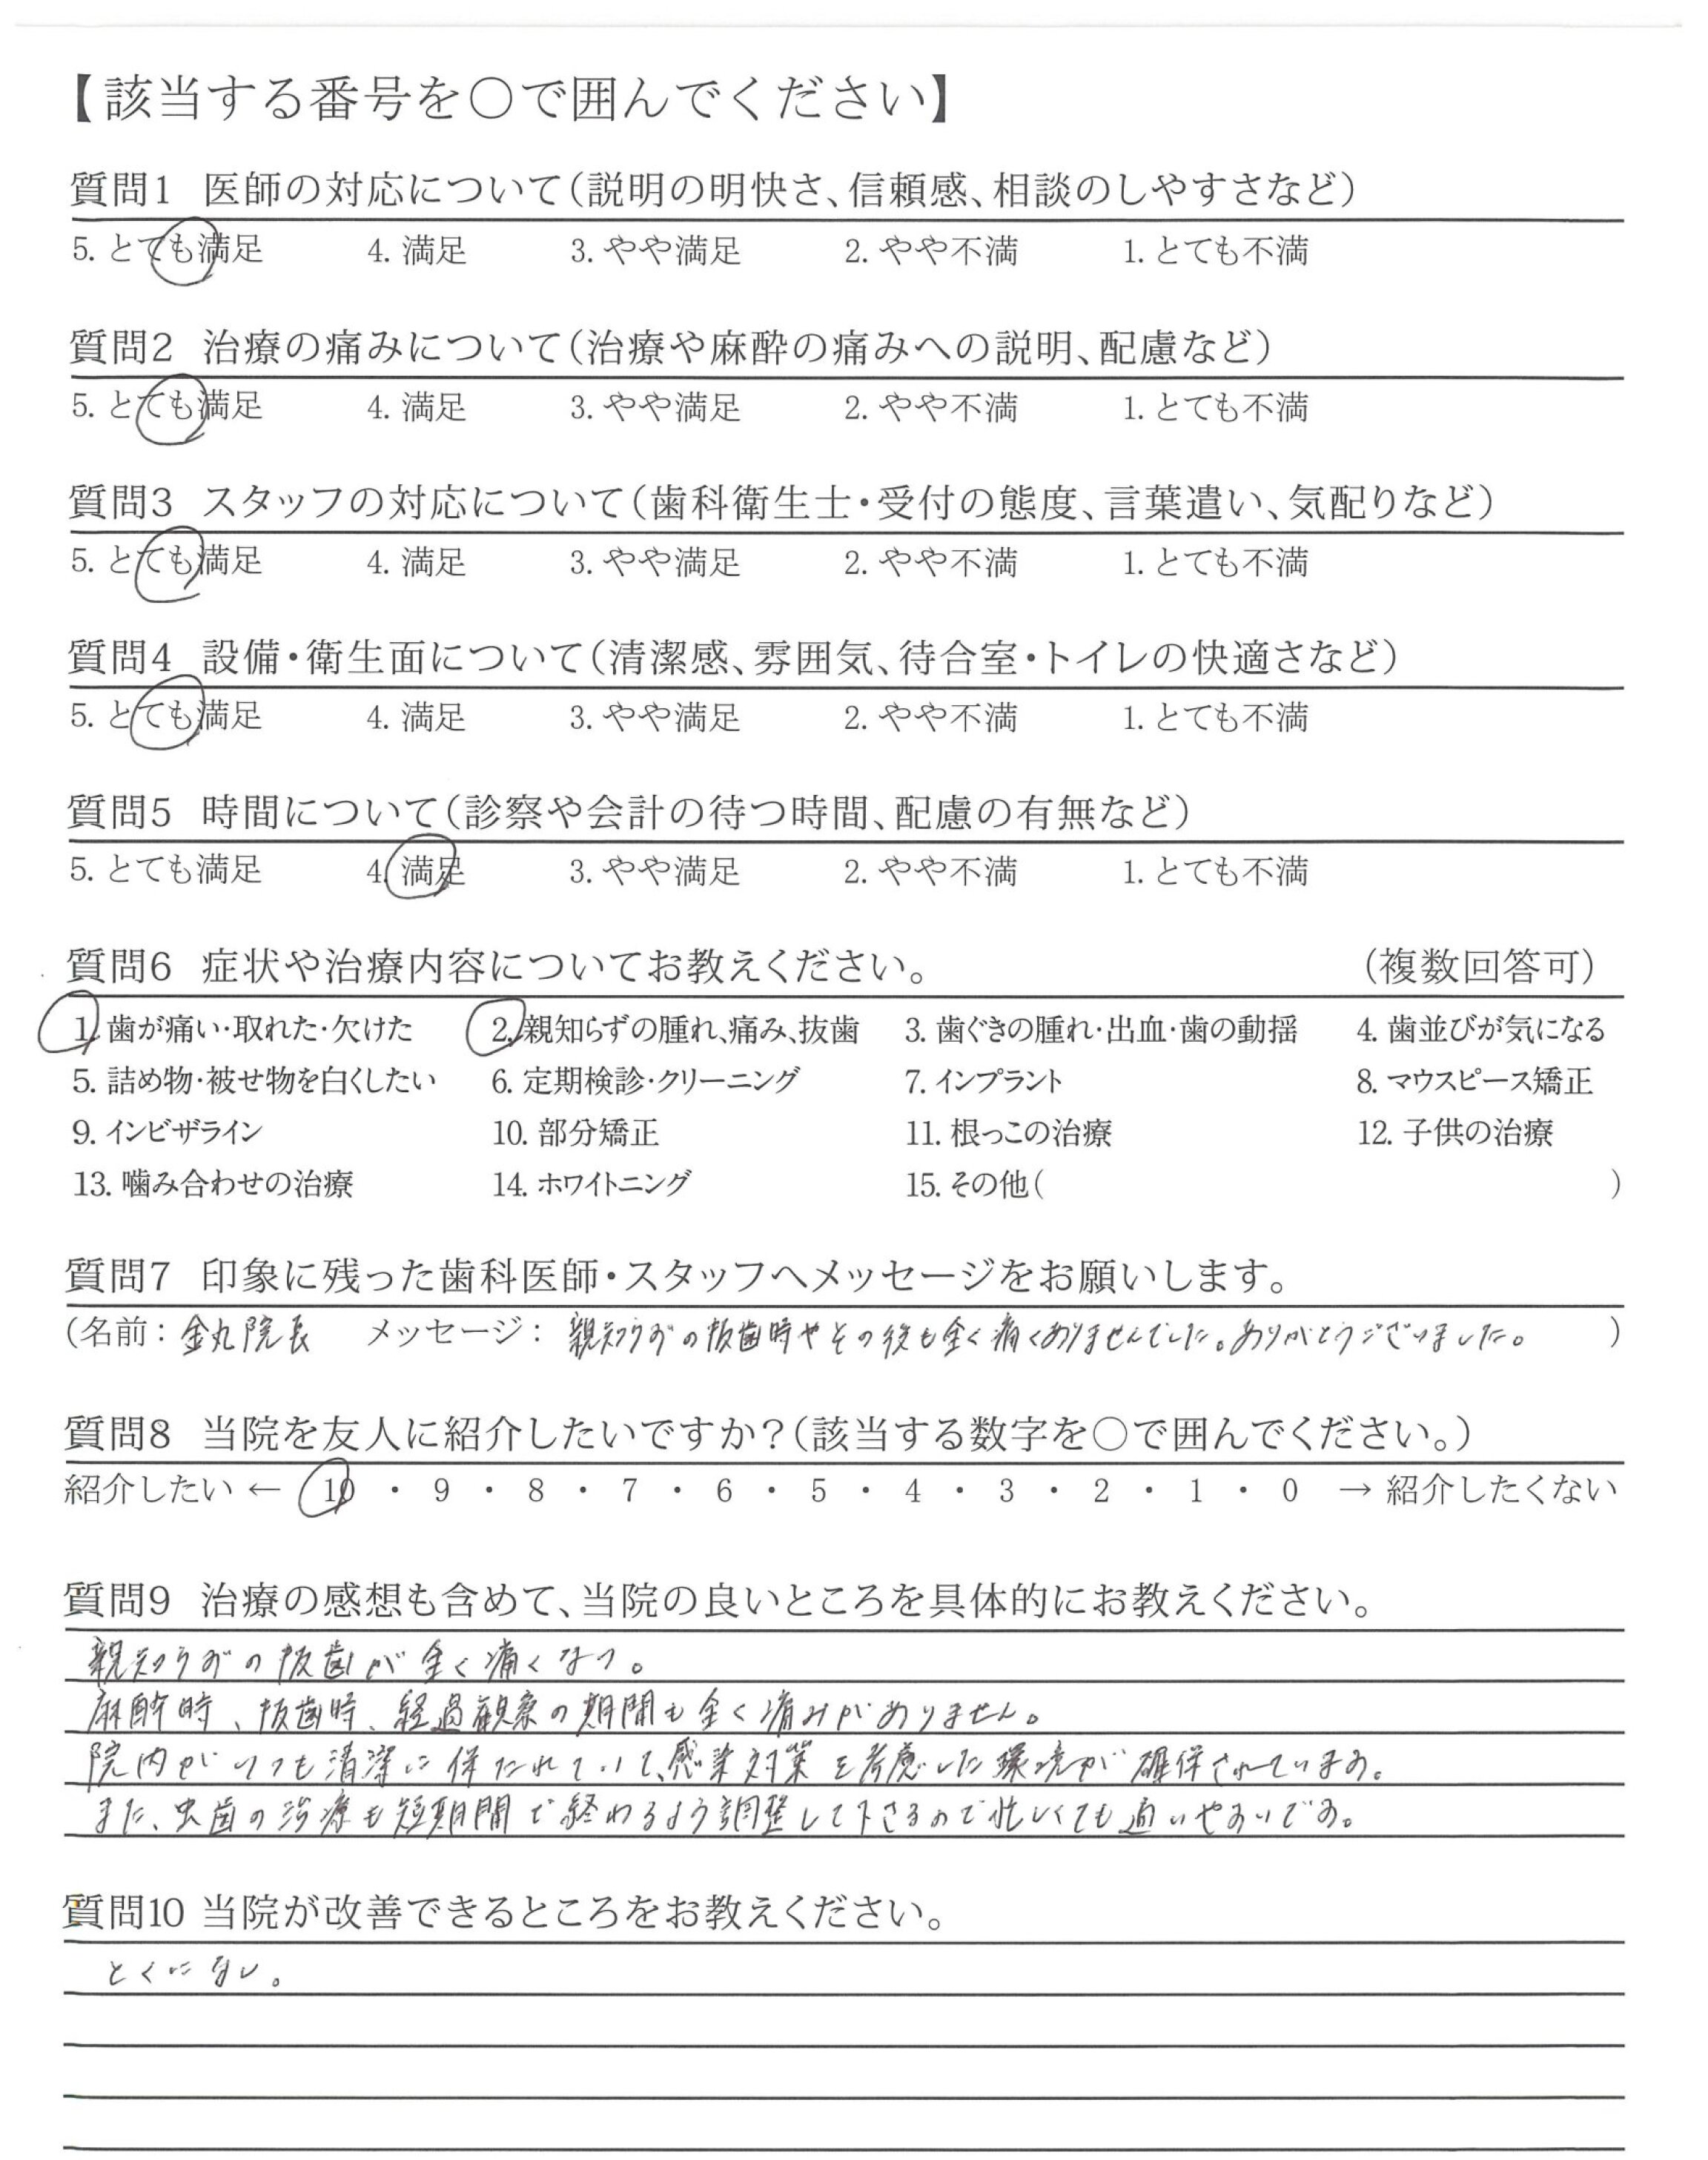 【該当する番号を○で囲んでください】
質問1 医師の対応について(説明の明快さ、信頼感、相談のしやすさなど)
5. とても満足 4. 満足 3. やや満足 2. やや不満 1. とても不満
質問2 治療の痛みについて(治療や麻酔の痛みへの説明、配慮など)
5. とても満足 4. 満足 3. やや満足 2. やや不満 1. とても不満
質問3 スタッフの対応について(歯科衛生士・受付の態度、言葉遣い、気配りなど)
5. とても満足 4. 満足 3. やや満足 2. やや不満 1. とても不満
質問4 設備・衛生面について(清潔感、雰囲気、待合室・トイレの快適さなど)
5. とても満足 4. 満足 3. やや満足 2. やや不満 1. とても不満
質問5 時間について(診察や会計の待つ時間、配慮の有無など)
5. とても満足 4. 満足 3. やや満足 2. やや不満 1. とても不満
質問6 症状や治療内容についてお教えください。 (複数回答可)
1. 歯が痛い・取れた・欠けた 2. 親知らずの腫れ、痛み、抜歯 3. 歯ぐきの腫れ・出血・歯の動揺 4. 歯並びが気になる
5. 詰め物・被せ物を白くしたい 6. 定期検診・クリーニング 7. インプラント 8. マウスピース矯正
9. インビザライン 10. 部分矯正 11. 根っこの治療 12. 子供の治療
13. 噛み合わせの治療 14. ホワイトニング 15. その他( )
質問7 印象に残った歯科医師・スタッフへメッセージをお願いします。
(名前： 金丸院長 メッセージ： 親知らずの抜歯時やその後も全く痛くありませんでした。ありがとうございました。 )
質問8 当院を友人に紹介したいですか？(該当する数字を○で囲んでください。)
紹介したい ← 10 ・ 9 ・ 8 ・ 7 ・ 6 ・ 5 ・ 4 ・ 3 ・ 2 ・ 1 ・ 0 → 紹介したくない
質問9 治療の感想も含めて、当院の良いところを具体的にお教えください。
親知らずの抜歯が全く痛くなつ。
麻酔時、抜歯時、経過観察の期間も全く痛みがありません。
院内がいつも清潔に保たれていて、感染対策を考慮した環境が確保されています。
また、虫歯の治療も短期間で終わるよう調整して下さるので忙しくても通いやすいです。
質問10 当院が改善できるところをお教えください。
とくになし。